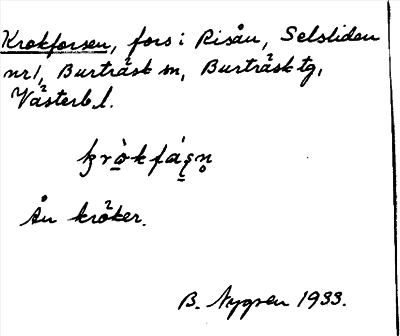 Krokforsen, fors i Risån, Selsliden
nr 1, Burträsk sn, Burträsk tg,
Västerb. l.
kròkfáşņ
Ån kröker.
B. Nygren 1933.